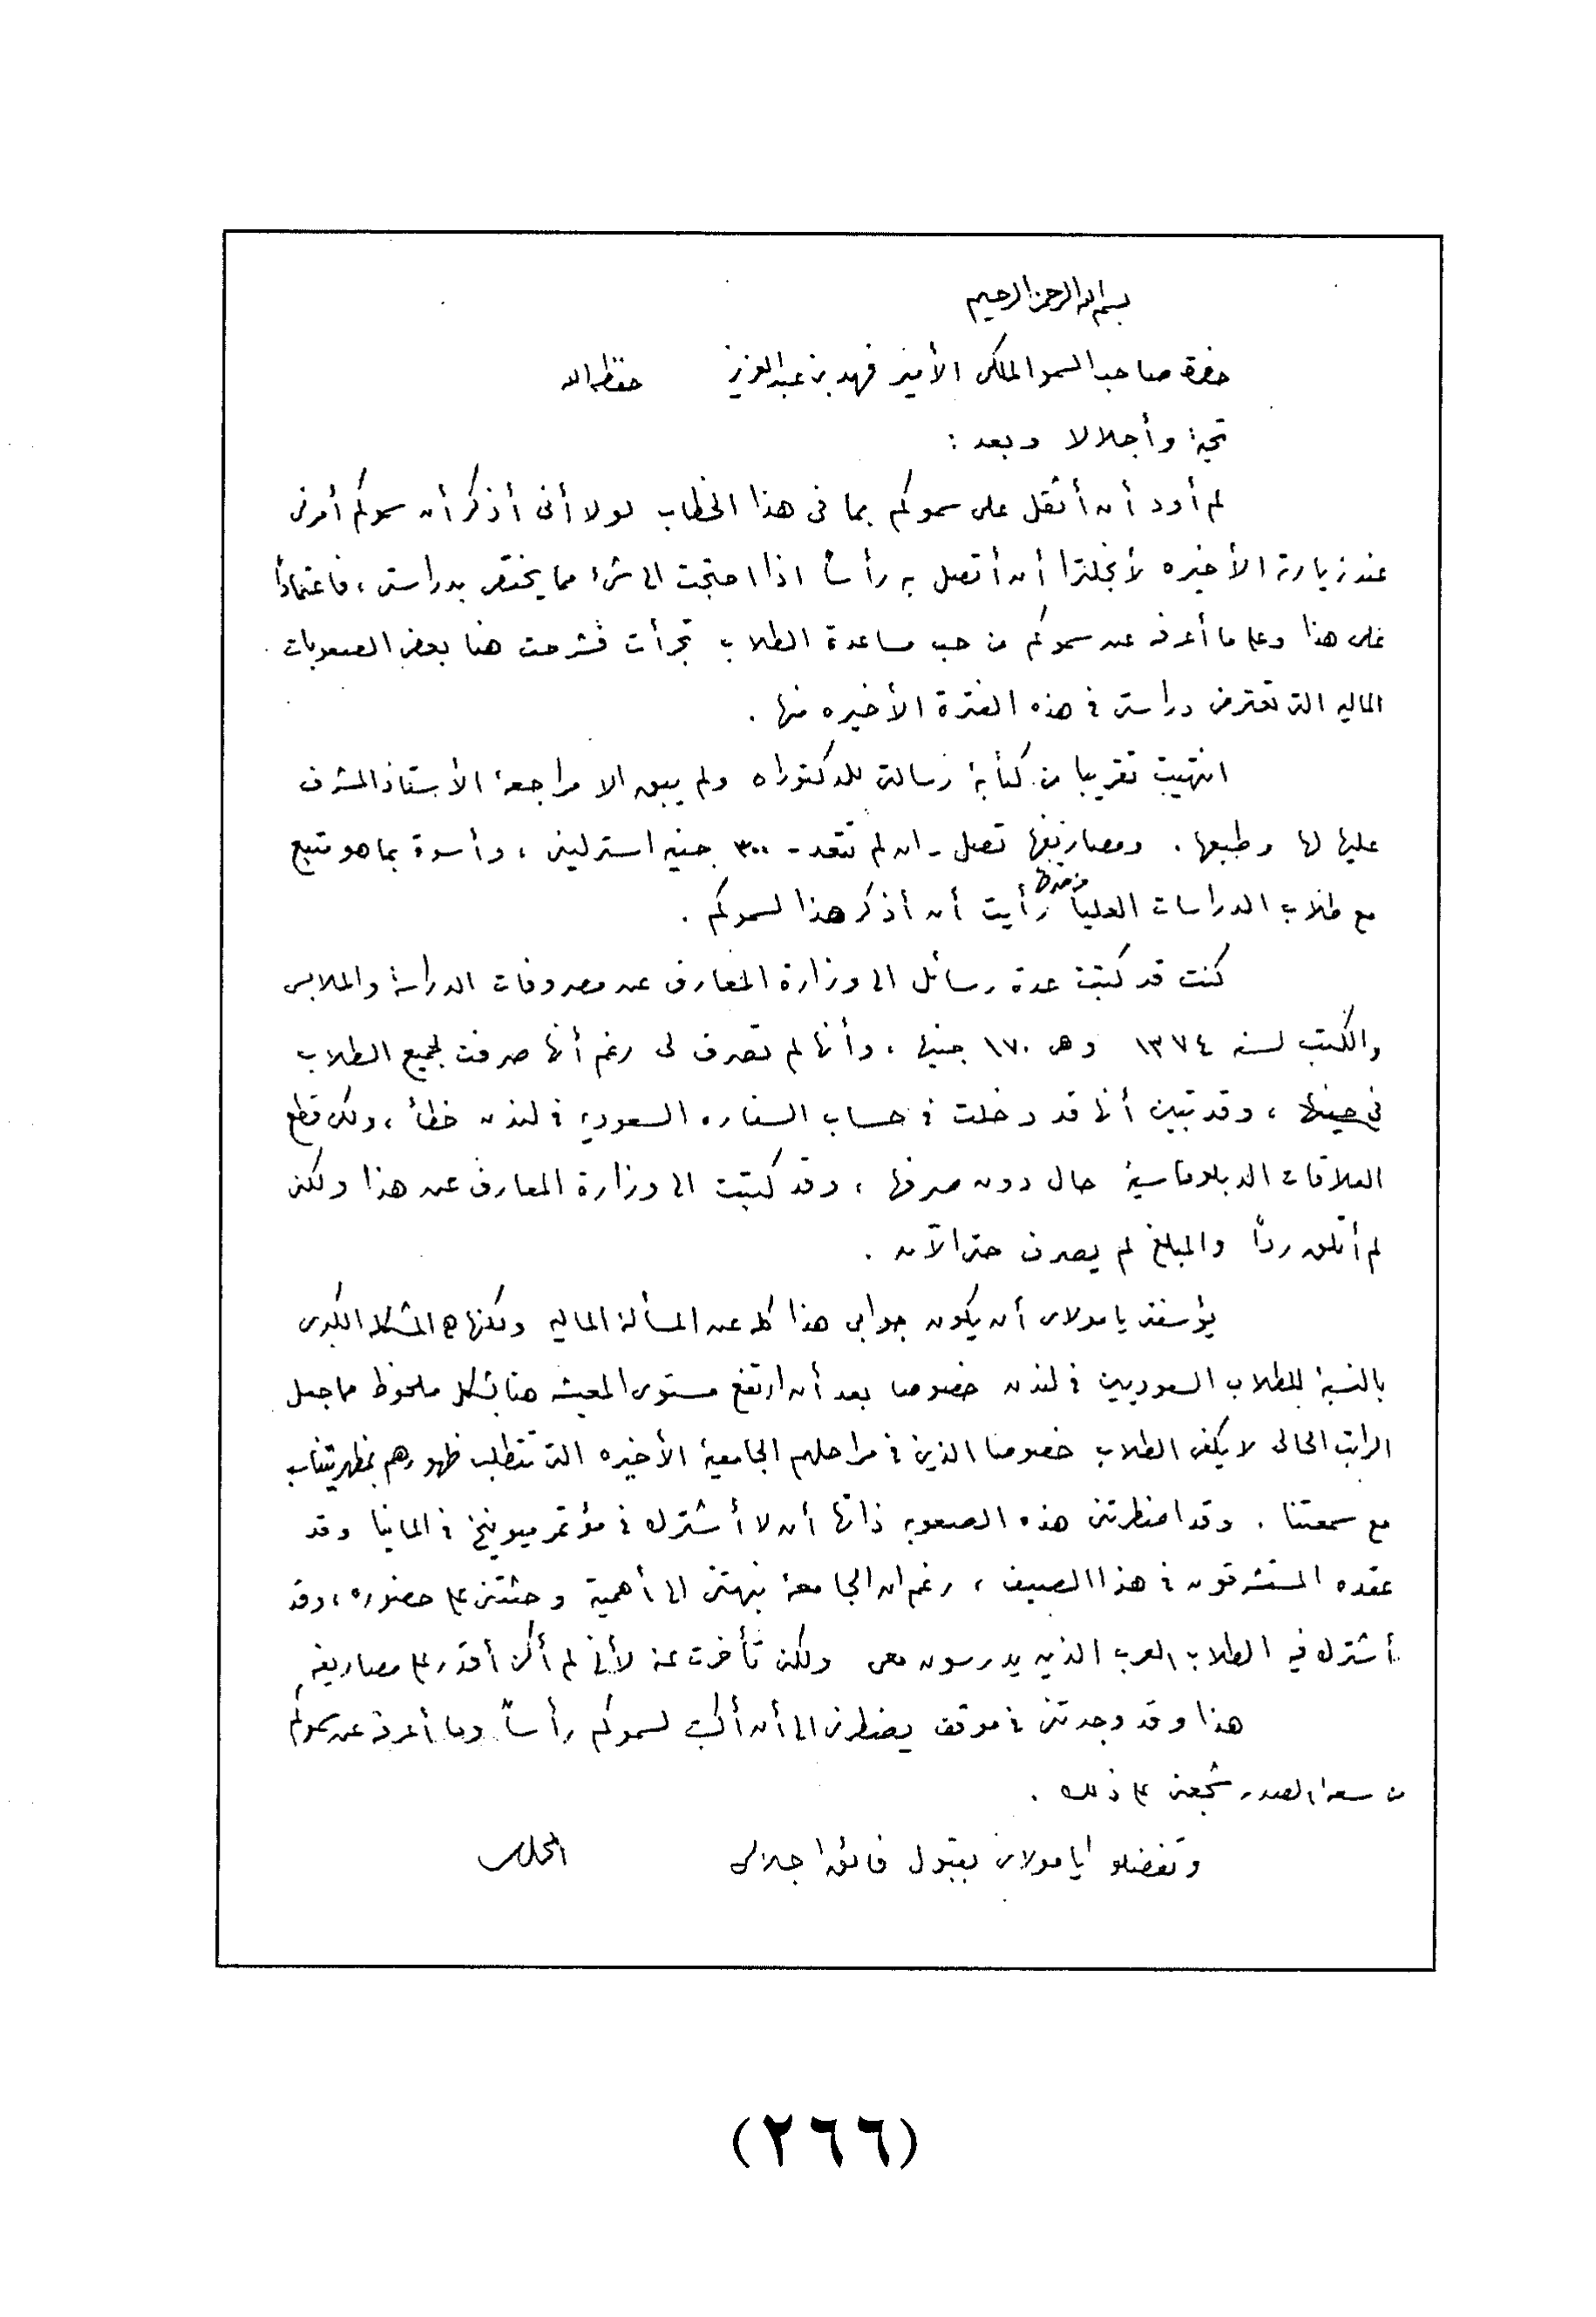 بسم الله الرحمن الرحيم
حضرة صاحب السمو الملكي الأمير فهد بن عبد العزيز حفظه الله
تحية وأجلالا وبعد :
لم أود أن أثقل على سموكم بما فى هذا الخطاب لولا أنى أذكر أن سموكم أمرنى
عند زيارته الأخيره لأنجلترا أن أتصل به رأساً اذا احتجت الى شىء مما يختص بدراستى ، فاعتماداً
على هذا وعلى ما أعرفه عن سموكم من حب مساعدة الطلاب تجرأت فشرحت هنا بعض الصعوبات
الماليه التى تعترض دراستى فى هذه الفترة الأخيره منها .
انتهيت تقريبا من كتابة رسالتى للدكتوراه ولم يبق الا مراجعة الأستاذ المشرف
عليها لها وطبعها . ومصاريفها تصل - ان لم تتعد - ٣٠٠ جنيه استرلينى ، وأسوة بما هو متبع
مع طلاب الدراسات العليا رأيت أن أذكر هذا لسموكم .
كنت قد كتبت عدة رسائل الى وزارة المعارف عن مصروفات الدراسة والملابس
والكتب لسنة ١٣٧٤ وهى ١٧٠ جنيها ، وأنها لم تصرف لى رغم أنها صرفت لجميع الطلاب
في حينها ، وقد تبين أنها قد دخلت فى حساب السفاره السعوديه فى لندن خطأ ، ولكن قطع
العلاقات الدبلوماسية حال دون صرفها ، وقد كتبت الى وزارة المعارف عن هذا ولكن
لم أتلق رداً والمبلغ لم يصرف حتى الآن .
يؤسفنى يا مولاى أن يكون جوابى هذا كله عن المسألة الماليه ولكنها هى المشكله الكبرى
بالنسبة للطلاب السعوديين فى لندن خصوصا بعد أن ارتفع مستوى المعيشه هنا بشكل ملحوظ مما جعل
الراتب الحالى لا يكفى الطلاب خصوصا الذين فى مراحلهم الجامعية الأخيره التى تتطلب ظهورهم بمظهر يتناسب
مع سمعتنا . وقد اضطرتنى هذه الصعوبه ذاتها أن لا أشترك فى مؤتمر ميونيخ فى المانيا وقد
عقده المستشرقون فى هذا الصيف ، رغم ان الجامعة نبهتنى الى أهمية وحثتنى على حضوره ، وقد
أشترك فيه الطلاب العرب الذين يدرسون معى ولكن تأخرت عنه لأنى لم أكن أقدر على مصاريفه
هذا وقد وجدتنى فى موقف يضطرنى الى أن أكتب لسموكم رأساً وما أعرفه عن سموكم
من سعة الصدر شجعنى على ذلك .
وتفضلوا يا مولاى بقبول فائق اجلالى المخلص
(٢٦٦)